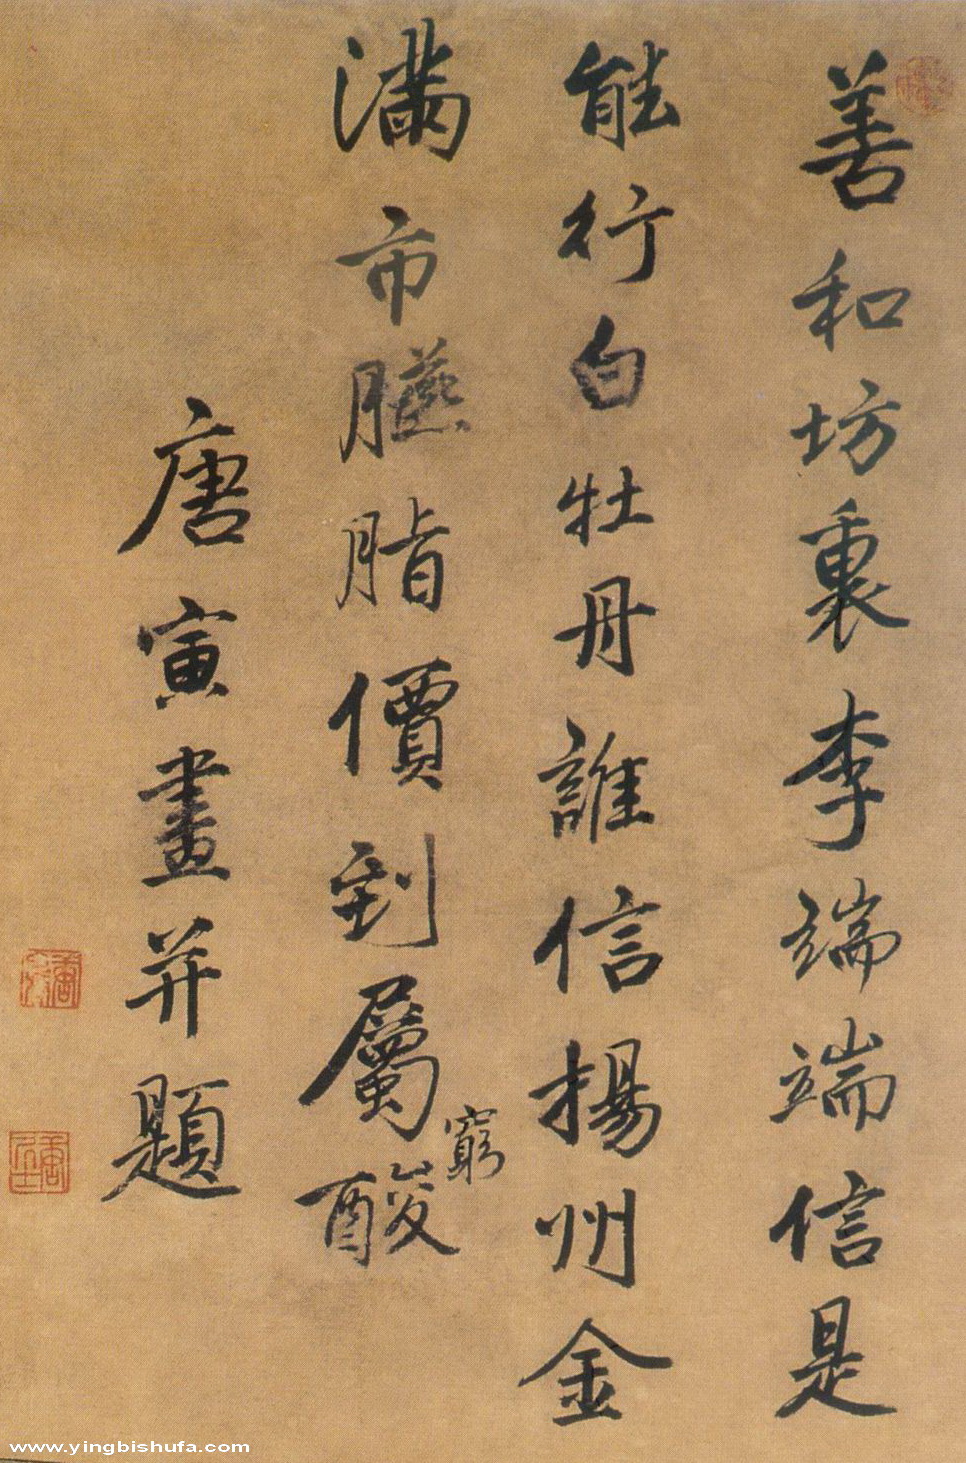 善和坊裏李端端信是
能行白牡丹誰信揚州金
滿市臙脂價到屬窮酸
唐寅畫并題
www.yingbishufa.com